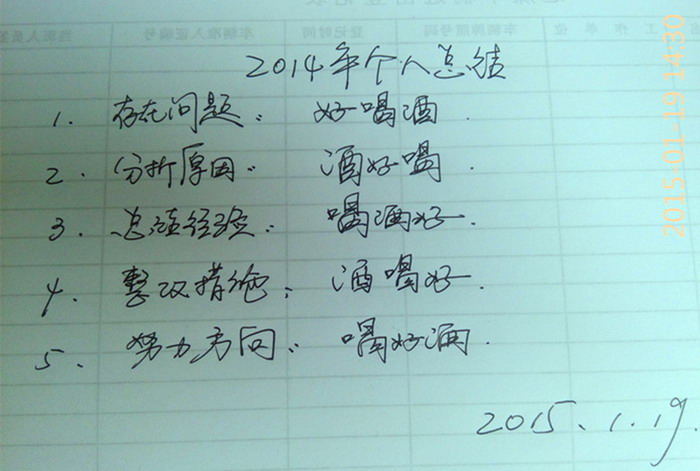 2014年个人总结
1. 存在问题: 好喝酒.
2. 分析原因: 酒好喝.
3. 总结经验: 喝酒好.
4. 整改措施: 酒喝好.
5. 努力方向: 喝好酒.
2015.1.19.
2015-01-19 14:30